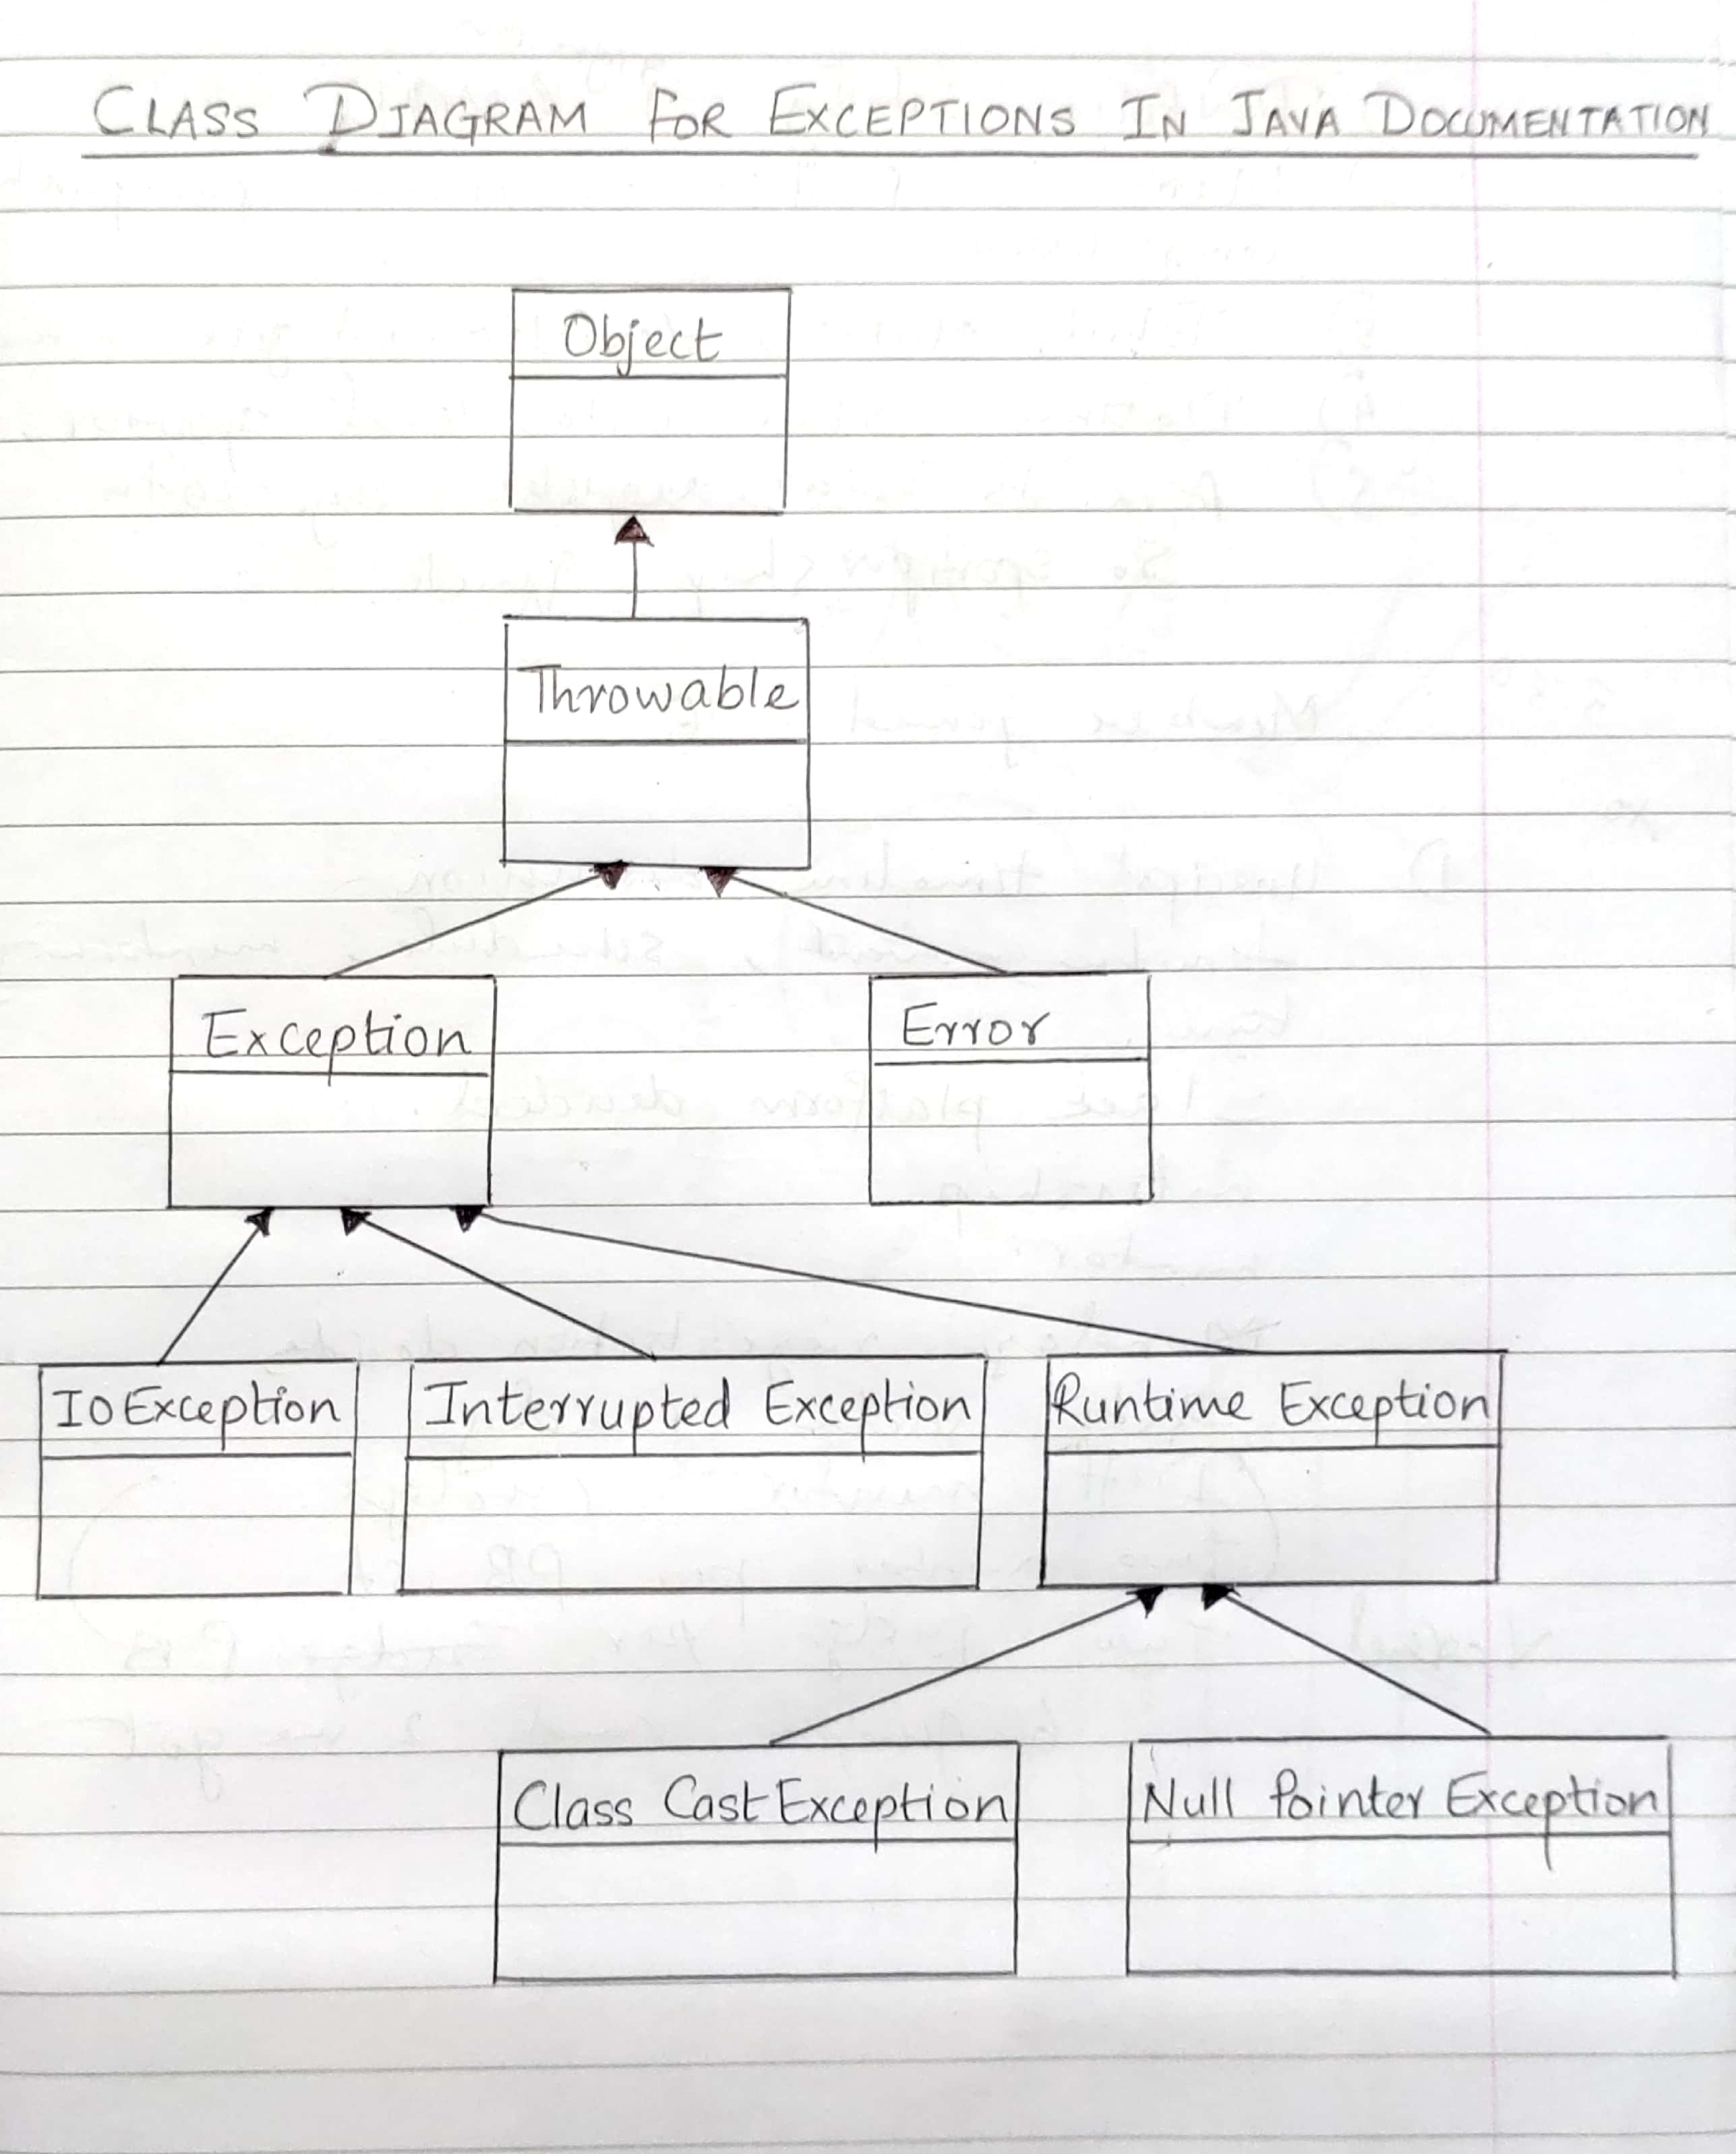 CLASS DIAGRAM FOR EXCEPTIONS IN JAVA DOCUMENTATION
Object
Throwable
Exception
Error
IOException
Interrupted Exception
Runtime Exception
Class Cast Exception
Null Pointer Exception